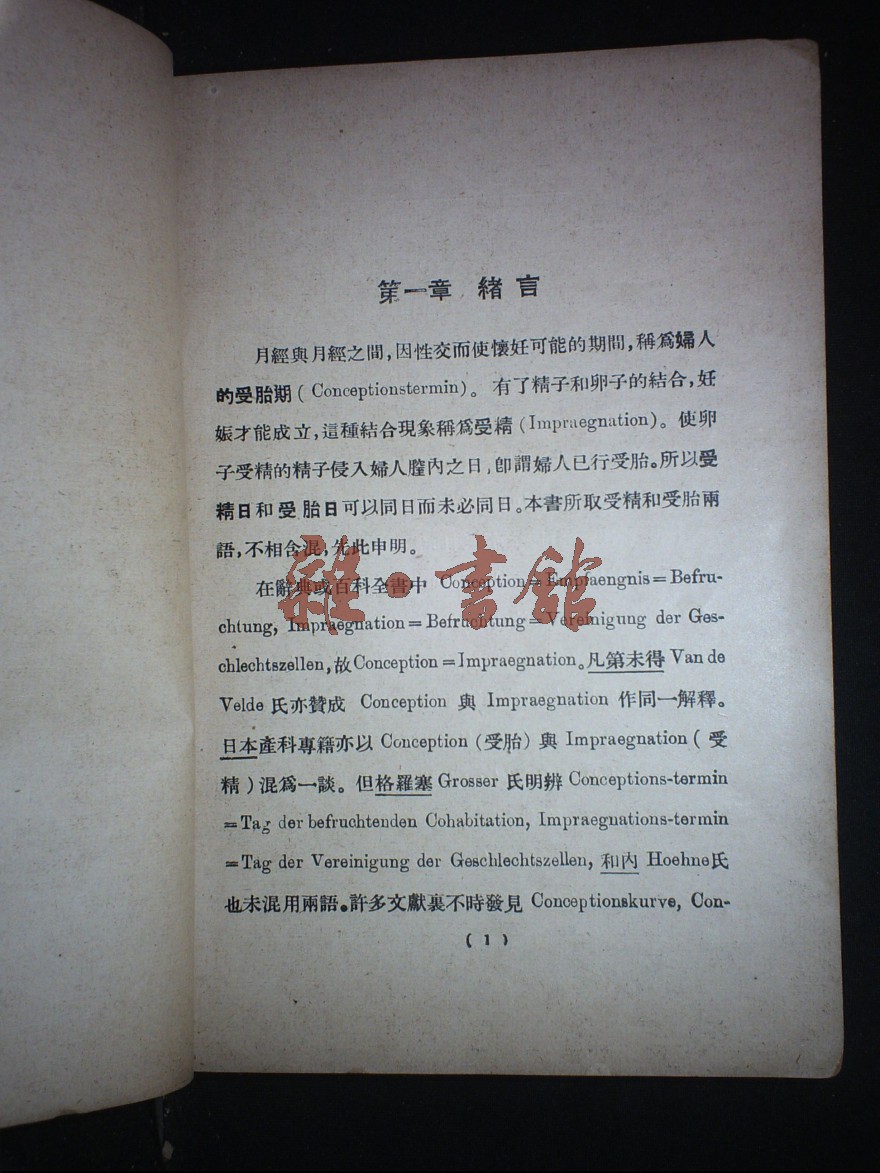 第一章 緒言
月經與月經之間,因性交而使懷妊可能的期間,稱爲婦人
的受胎期(Conceptionstermin)。有了精子和卵子的結合,妊
娠才能成立,這種結合現象稱爲受精(Impraegnation)。使卵
子受精的精子侵入婦人膣內之日,卽謂婦人已行受胎。所以受
精日和受胎日可以同日而未必同日。本書所取受精和受胎兩
語,不相含混,先此申明。
在辭典或百科全書中 Conception=Empraengnis=Befru-
chtung, Impraegnation=Befruchtung=Vereinigung der Ges-
chlechtszellen,故Conception=Impraegnation。凡第未得 Van de
Velde 氏亦贊成 Conception 與 Impraegnation 作同一解釋。
日本產科專籍亦以 Conception(受胎)與 Impraegnation(受
精)混爲一談。但格羅塞 Grosser 氏明辨 Conceptions-termin
=Tag der befruchtenden Cohabitation, Impraegnations-termin
=Tag der Vereinigung der Geschlechtszellen, 和內 Hoehne氏
也未混用兩語。許多文獻裏不時發見 Conceptionskurve, Con-
(1)
雜·書館